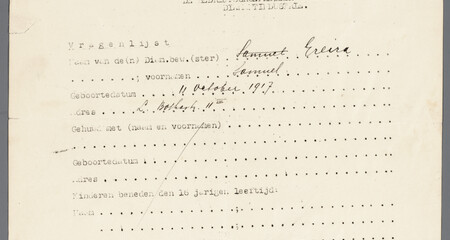 V r a g e n l i j s t
Naam van de(n) Diam.bew.(ster) Samuel Ereira
" ; voornamen Samuel
Geboortedatum 11 October 1917
Adres
Gehuwd met (naam en voornamen)
Geboortedatum
Adres
Kinderen beneden den 16 jarigen leeftijd:
Naam